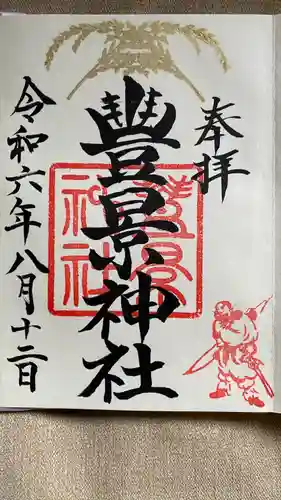 奉拝
豊景神社
豊景
神社
令和六年八月十二日